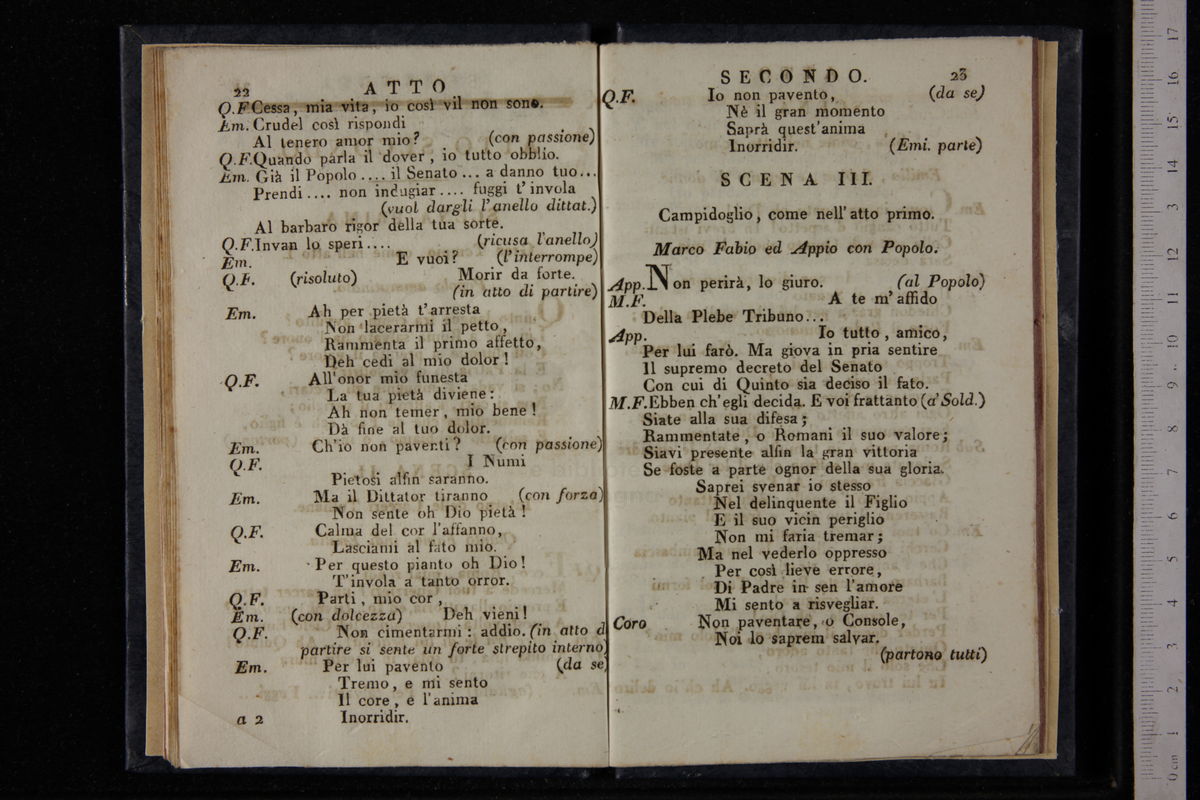 22 ATTO
Q.F Cessa, mia vita, io così vil non sono.
Em. Crudel così rispondi
Al tenero amor mio? (con passione)
Q.F. Quando parla il dover, io tutto obblio.
Em. Già il Popolo .... il Senato ... a danno tuo...
Prendi .... non indugiar .... fuggi t'invola
(vuol dargli l'anello dittat.)
Al barbaro rigor della tua sorte.
Q.F. Invan lo speri.... (ricusa l'anello)
Em. E vuoi? (l'interrompe)
Q.F. (risoluto) Morir da forte.
(in atto di partire)
Em. Ah per pietà t'arresta
Non lacerarmi il petto,
Rammenta il primo affetto,
Deh cedi al mio dolor!
Q.F. All'onor mio funesta
La tua pietà diviene:
Ah non temer, mio bene!
Dà fine al tuo dolor.
Em. Ch'io non paventi? (con passione)
Q.F. I Numi
Pietosi alfin saranno.
Em. Ma il Dittator tiranno (con forza)
Non sente oh Dio pietà!
Q.F. Calma del cor l'affanno,
Lasciami al fato mio.
Em. Per questo pianto oh Dio!
T'invola a tanto orror.
Q.F. Parti, mio cor,
Em. (con dolcezza) Deh vieni!
Q.F. Non cimentarmi: addio. (in atto d
partire si sente un forte strepito interno)
Em. Per lui pavento (da se
Tremo, e mi sento
Il core, e l'anima
a 2 Inorridir.
SECONDO. 23
Q.F. Io non pavento, (da se)
Nè il gran momento
Saprà quest'anima
Inorridir. (Emi. parte)
SCENA III.
Campidoglio, come nell'atto primo.
Marco Fabio ed Appio con Popolo.
App. Non perirà, lo giuro. (al Popolo)
M.F. A te m'affido
Della Plebe Tribuno...
App. Io tutto, amico,
Per lui farò. Ma giova in pria sentire
Il supremo decreto del Senato
Con cui di Quinto sia deciso il fato.
M.F. Ebben ch'egli decida. E voi frattanto (a' Sold.)
Siate alla sua difesa;
Rammentate, o Romani il suo valore;
Siavi presente alfin la gran vittoria
Se foste a parte ognor della sua gloria.
Saprei svenar io stesso
Nel delinquente il Figlio
E il suo vicin periglio
Non mi faria tremar;
Ma nel vederlo oppresso
Per così lieve errore,
Di Padre in sen l'amore
Mi sento a risvegliar.
Coro Non paventare, o Console,
Noi lo saprem salvar.
(partono tutti)
0 cm 1 2 3 4 5 6 7 8 9 10 11 12 13 14 15 16 17